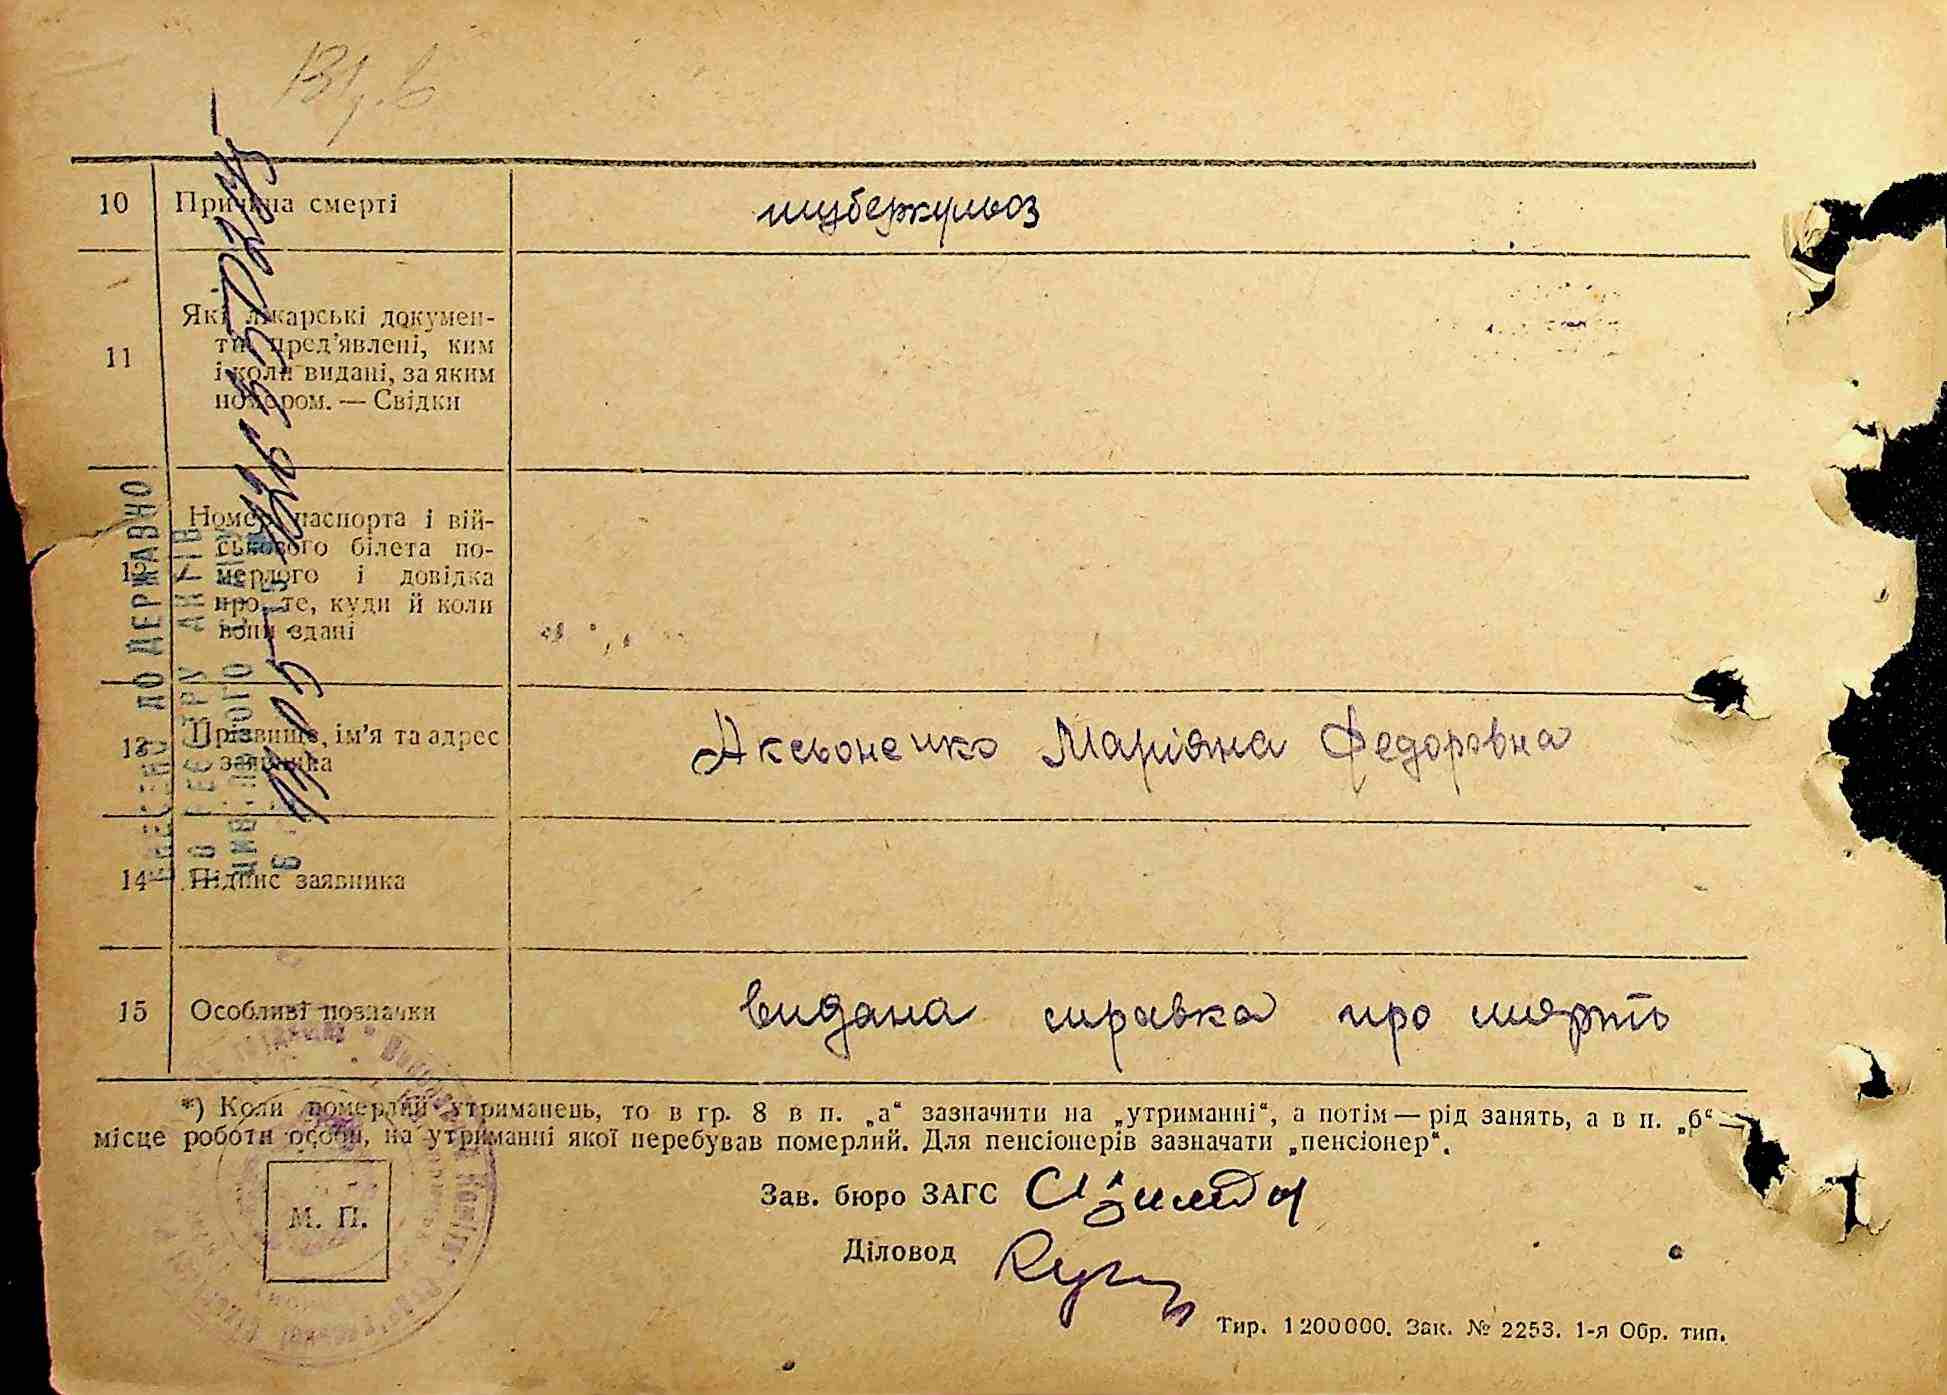 10 Причина смерті туберкульоз
11 Які лікарські докумен-
ти пред’явлені, ким
і коли видані, за яким
номером. — Свідки
12 Номер паспорта і вій-
ськового білета по-
мерлого і довідка
про те, куди й коли
вони здані
13 Прізвище, ім’я та адрес Аксьоненко Маріяна Федоровна
заявника
14 Підпис заявника
15 Особливі позначки видана справка про смерть
*) Коли померлий утриманець, то в гр. 8 в п. „а“ зазначити на „утриманні“, а потім — рід занять, а в п. „б“ —
місце роботи особи, на утриманні якої перебував померлий. Для пенсіонерів зазначати „пенсіонер“.
М. П.
Зав. бюро ЗАГС
Діловод
Тир. 1200000. Зак. № 2253. 1-я Обр. тип.
ДО ДЕРЖАВНО
РЕЄСТРУ АКТІВ